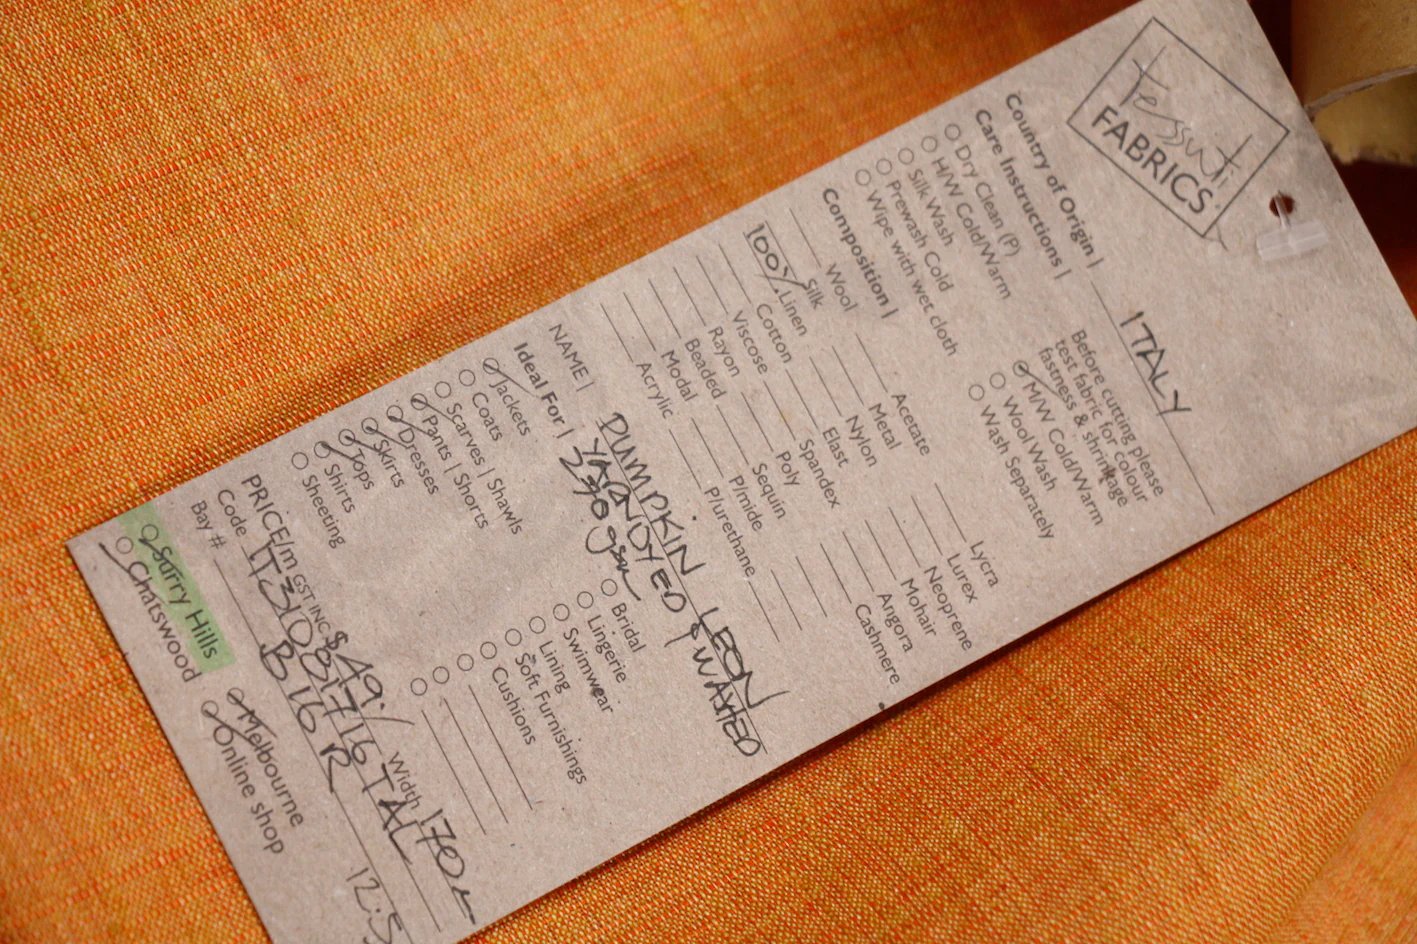 tessuti
FABRICS
Country of Origin | ITALY
Care Instructions |
Dry Clean (P)
H/W Cold/Warm
Silk Wash
Prewash Cold
Wipe with wet cloth
Before cutting please
test fabric for colour
fastness & shrinkage
M/W Cold/Warm
Wool Wash
Wash Separately
Composition |
Wool
Silk
100% Linen
Cotton
Viscose
Rayon
Beaded
Modal
Acrylic
Acetate
Metal
Nylon
Elast
Spandex
Poly
Sequin
P/mide
P/urethane
Lycra
Lurex
Neoprene
Mohair
Angora
Cashmere
NAME | PUMPKIN LEON
YARNDYED & WASHED
270 gsm
Ideal For |
Jackets
Coats
Scarves | Shawls
Pants | Shorts
Dresses
Skirts
Tops
Shirts
Sheeting
Bridal
Lingerie
Swimwear
Lining
Soft Furnishings
Cushions
PRICE/m GST INC $49./ Width 170
Code
Bay # B 16 R 12.5
Surry Hills
Chatswood
Melbourne
Online shop